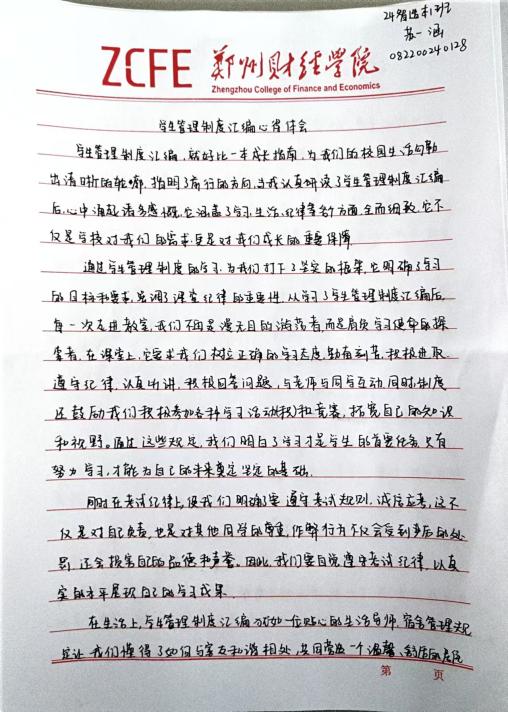 24智造本1班
苏一涵
082200240128
ZCFE 郑州财经学院
Zhengzhou College of Finance and Economics
学生管理制度汇编心得体会
学生管理制度汇编,就好比一本成长指南,为我们的校园生活勾勒
出清晰的轮廓,指明了前行的方向,当我认真研读了学生管理制度汇编
后,心中涌起诸多感慨,它涵盖了学习、生活、纪律等多个方面,全面细致,它不
仅是学校对我们的要求,更是对我们成长的重要保障.
通过学生管理制度的学习,为我们打下了坚定的框架,它明确了学习
的目标和要求,强调了课堂纪律的重要性,从学习了学生管理制度汇编后,
每一次走进教室,我们不再是漫无目的游荡者,而是肩负学习使命的探
索者,在课堂上,它要求我们树立正确的学习态度,勤奋刻苦,积极进取.
遵守纪律,认真听讲,积极回答问题,与老师与同学互动,同时,制度
还鼓励我们积极参加各种学习活动和竞赛,拓宽自己的知识
和视野。通过这些规定,我们明白了学习才是学生的首要任务,只有
努力学习,才能为自己的未来奠定坚定的基础.
同时在考试纪律上,使我们明确了要遵守考试规则,诚信应考,这不
仅是对自己负责,也是对其他同学的尊重,作弊行为不仅会受到严厉的处
罚,还会损害自己的品德和声誉。因此,我们要自觉遵守考试纪律,以真
实的水平展现自己的学习成果.
在生活上,学生管理制度汇编犹如一位贴心的生活导师,宿舍管理规
定让我们懂得了如何与室友和谐相处,共同营造一个温馨、舒适的居住
第 页